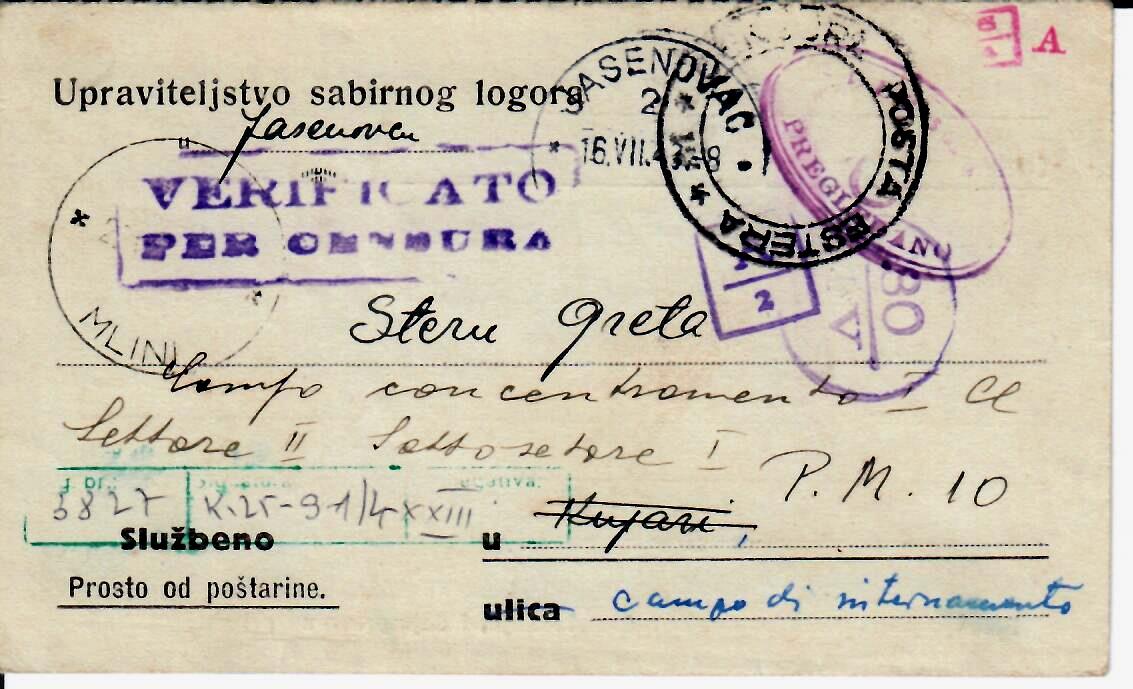 A
Upraviteljstvo sabirnog logora
u Jasenovcu
JASENOVAC
2
16.VII.4 -8
POSTA ESTERA
VERIFICATO
PER CENSURA
MLINI
2
80
A
Stern Greta
Campo concentramento I Cl
Settore II Sottosetore I
P.M. 10
3827
K.25-9 1/4
XXIII
Službeno
Prosto od poštarine.
u Kupari,
ulica campo di internamento